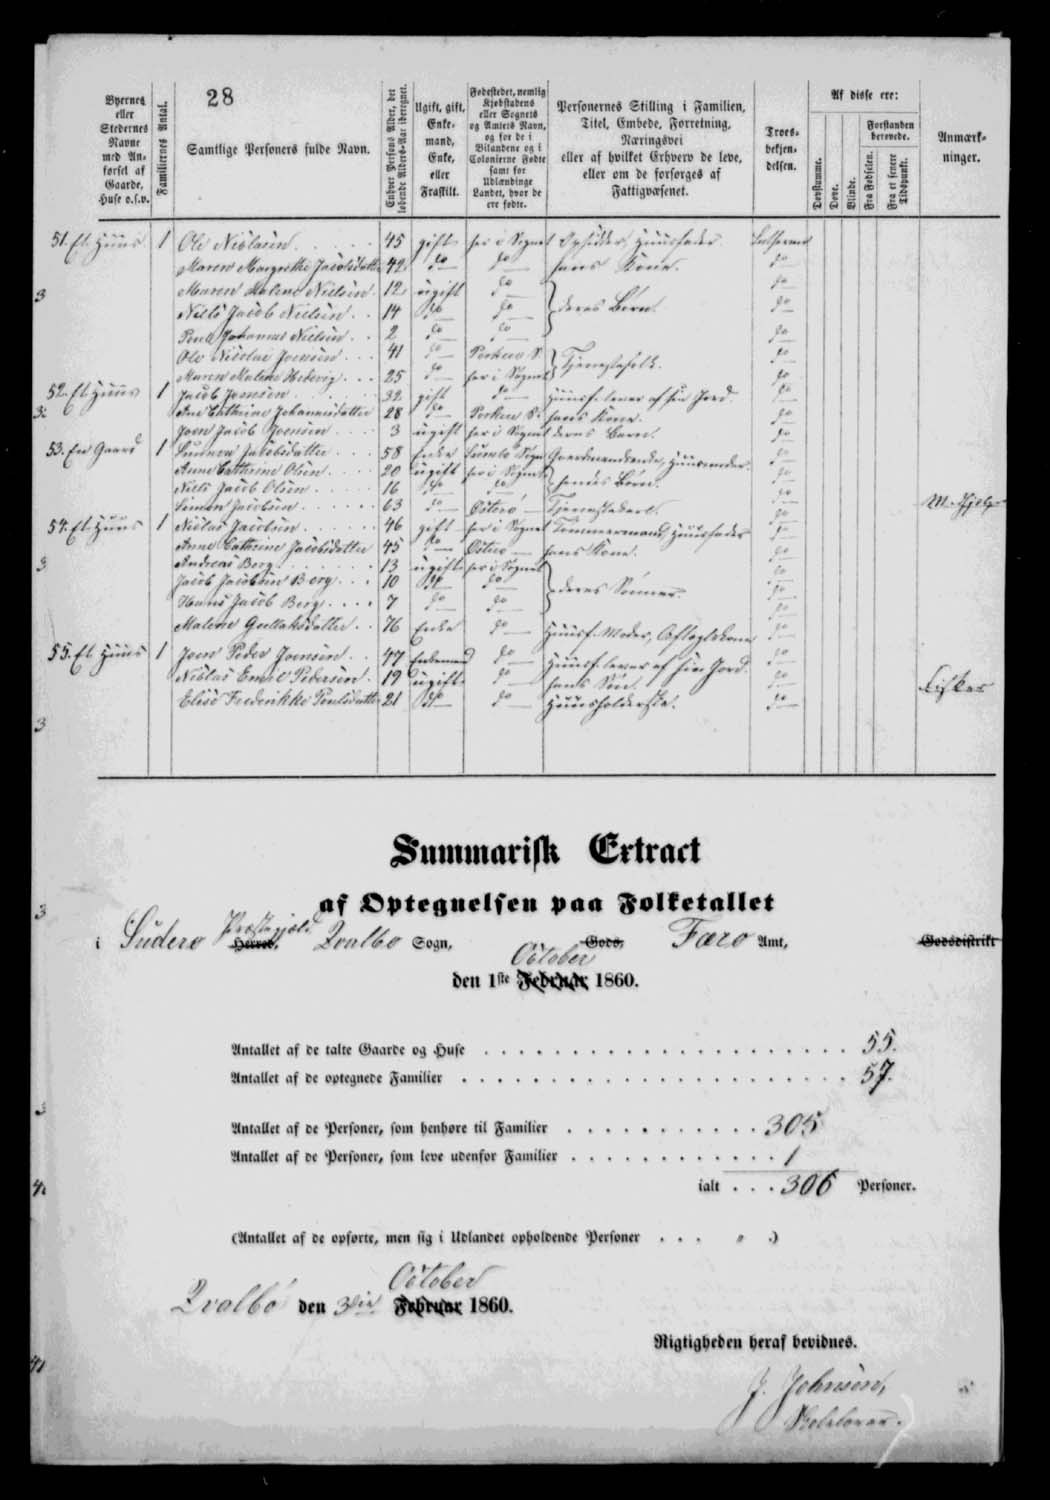 28
Byernes eller Stedernes Navne med Anførsel af Gaarde, Huse o.s.v.
Familiernes Antal.
Samtlige Personers fulde Navn.
Enhver Persons Alder, det løbende Alders-Aar iberegnet.
Ugift, gift, Enkemand, Enke, eller Fraskilt.
Fødestedet, nemlig Kjøbstadens eller Sognets og Amtets Navn, og for de i Bilandene og i Colonierne Fødte samt for Udlændinge Landet, hvor de ere fødte.
Personernes Stilling i Familien, Titel, Embede, Forretning, Næringsvei eller af hvilket Erhverv de leve, eller om de forsørges af Fattigvæsenet.
Troesbekjendelsen.
Af disse ere:
Døvstumme.
Døve.
Blinde.
Forstanden berøvede.
Fra Fødselen.
Fra et senere Tidspunkt.
Anmærkninger.
51. Et Huus 1 Ole Niclasen 45 gift her i Sognet Opsidder, Huusfader Luthersk
Maren Margrethe Jacobsdatter 42 do do hans Kone. do
Maren Malene Nielsen 12 ugift do deres Børn. do
Niels Jacob Nielsen 14 do do do
Poul Johannes Nielsen 2 do do do
Ole Nicolai Joensen 41 do Porkere S. Tjenestefolk. do
Maren Malene Hedevig 25 do her i Sognet do
52. Et Huus 1 Jacob Joensen 32 gift do Huusf. lever af sin Jord. do
Ane Cathrine Johannesdatter 28 do Porkere S. hans Kone. do
Joen Jacob Joensen 3 ugift her i Sognet deres Barn. do
53. En Gaard 1 Sunneva Jacobsdatter 58 Enke Sumbø Sogn Gaardmandsenke, Huusmoder do
Anne Cathrine Olsen 20 ugift her i Sognet hendes Børn. do
Niels Jacob Olsen 16 do do do
Simon Jacobsen 63 do Østerø Tjenestekarl. do
54. Et Huus 1 Niclas Jacobsen 46 gift her i Sognet Tømmermand, Huusfader do
Anne Cathrine Jacobsdatter 45 do Østerø hans Kone. do
Andreas Berg 13 ugift her i Sognet deres Sønner. do
Jacob Jacobsen Berg 10 do do do
Hans Jacob Berg 7 do do do
Malene Gullaksdatter 76 Enke do Huusf. Moder, Aftægtskone do
55. Et Huus 1 Joen Peder Joensen 47 Enkemand do Huusf. lever af sin Jord. do
Niclas Emil Pedersen 19 ugift do hans Søn. do Fisker
Elise Frederikke Poulsdatter 21 do do Huusholderske. do
Summarisk Extract
af Optegnelsen paa Folketallet
i Suderø Præstegjeld Herred, Qvalbø Sogn, Gods, Færø Amt, Godsdistrikt
October
den 1ste Februar 1860.
Antallet af de talte Gaarde og Huse 55.
Antallet af de optegnede Familier 57.
Antallet af de Personer, som henhøre til Familier 305
Antallet af de Personer, som leve udenfor Familier 1
ialt 306 Personer.
(Antallet af de opførte, men sig i Udlandet opholdende Personer " .)
October
Qvalbø den 3die Februar 1860.
Rigtigheden heraf bevidnes.
J. Johnsen,